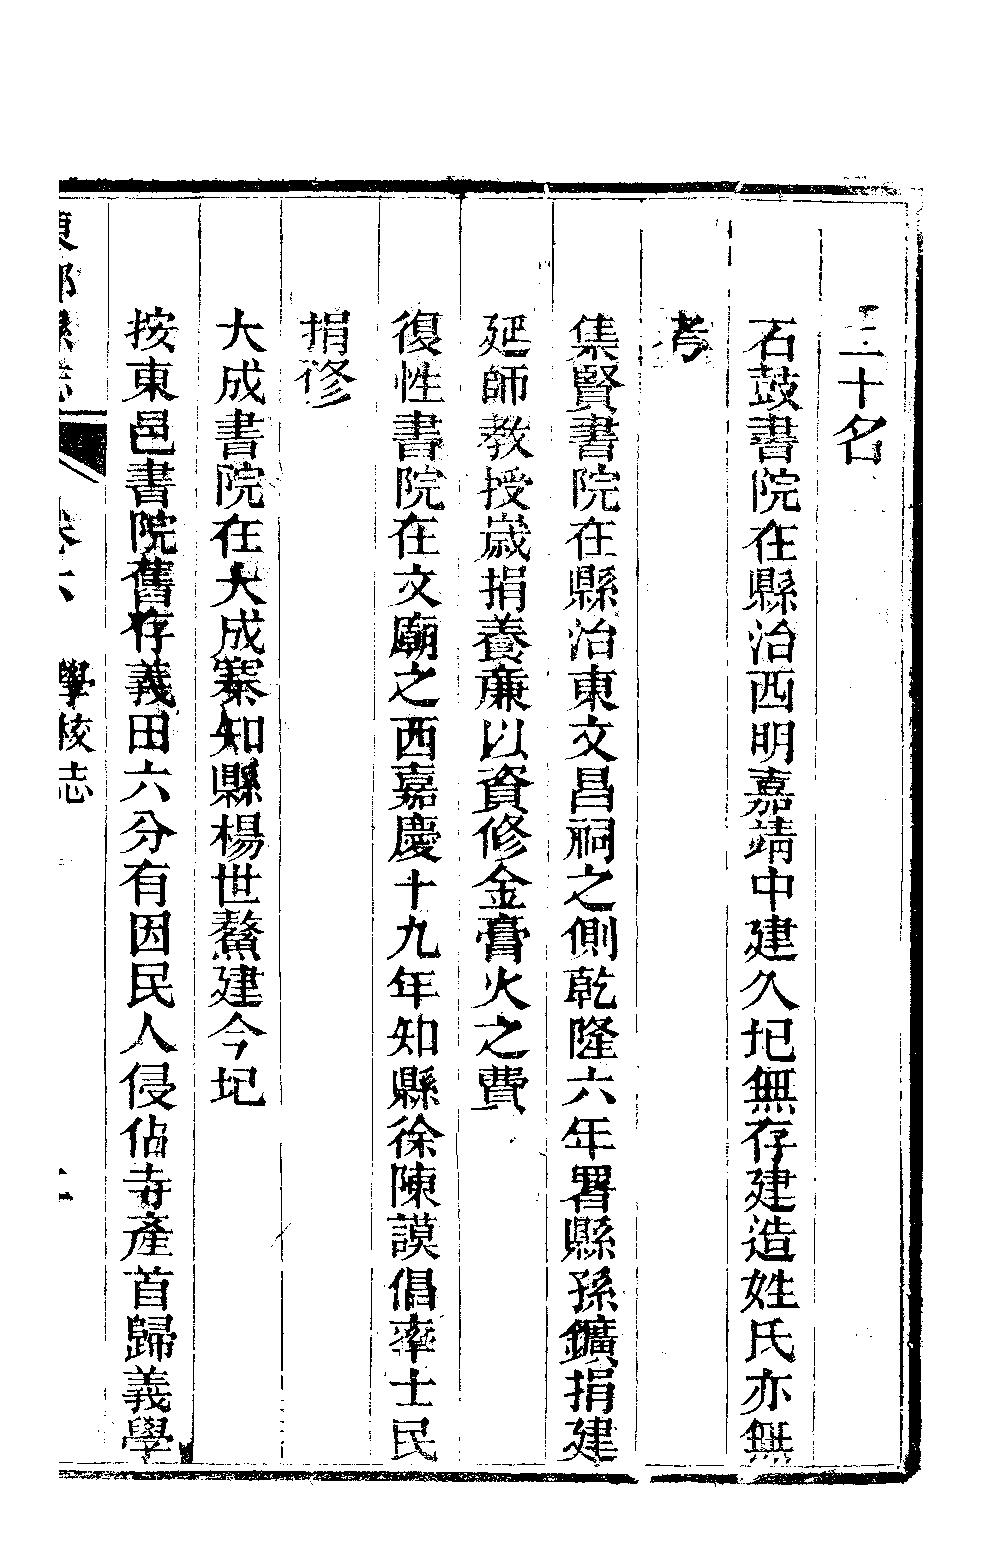 三十名
石鼓書院在縣治西明嘉靖中建久圮無存建造姓氏亦無
考
集賢書院在縣治東文昌祠之側乾隆六年署縣孫鑛捐建
延師教授歲捐養廉以資修金膏火之費
復性書院在文廟之西嘉慶十九年知縣徐陳謨倡率士民
捐修
大成書院在大成寨知縣楊世鰲建今圮
按東邑書院舊存義田六分有因民人侵佔寺產首歸義學
東鄉縣志 卷六 學校志